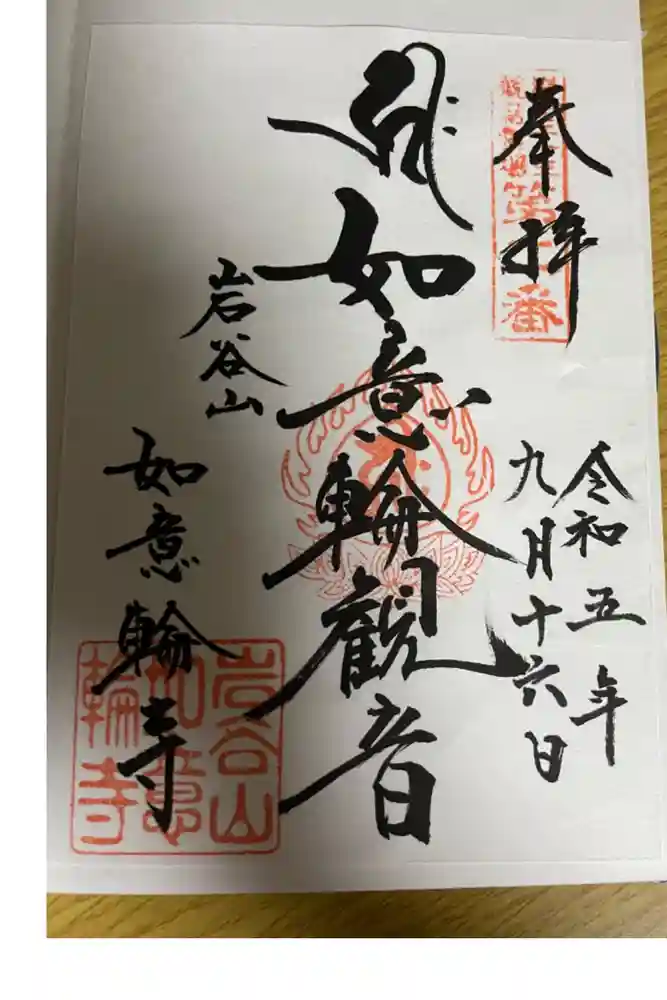 奉拝
令和五年
九月十六日
如意輪観音
岩谷山
如意輪寺
岩谷山
如意
輪寺